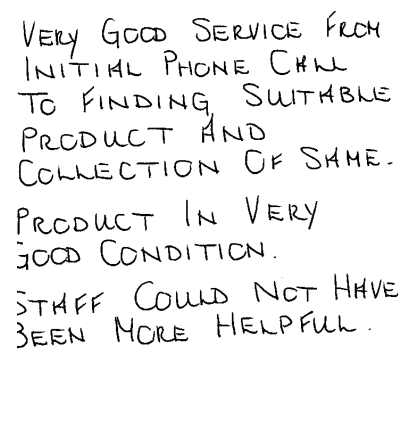 VERY GOOD SERVICE FROM
INITIAL PHONE CALL
TO FINDING SUITABLE
PRODUCT AND
COLLECTION OF SAME.
PRODUCT IN VERY
GOOD CONDITION.
STAFF COULD NOT HAVE
BEEN MORE HELPFUL.